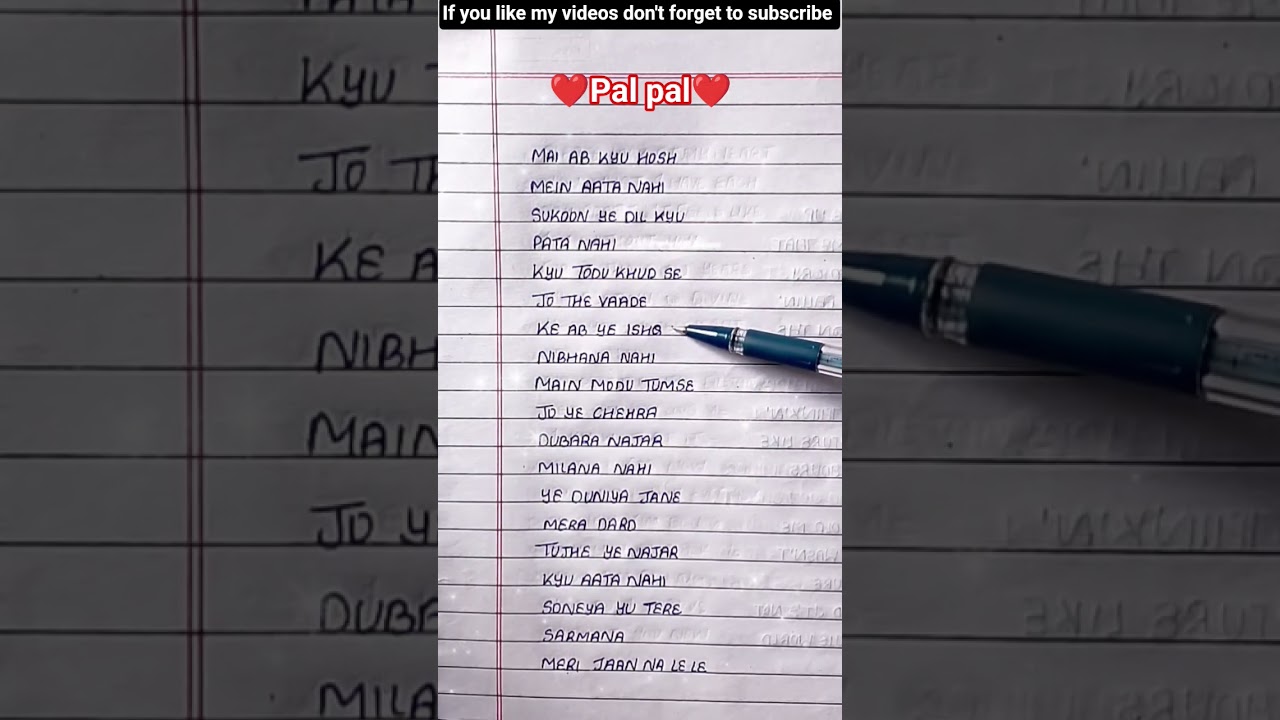 If you like my videos don't forget to subscribe
❤️Pal pal❤️
MAI AB KYU HOSH
MEIN AATA NAHI
SUKOON YE DIL KYU
PATA NAHI
KYU TODU KHUD SE
JO THE VAADE
KE AB YE ISHQ
NIBHANA NAHI
MAIN MODU TUMSE
JO YE CHEHRA
DUBARA NAJAR
MILANA NAHI
YE DUNIYA JANE
MERA DARD
TUJHE YE NAJAR
KYU AATA NAHI
SONEYA YU TERE
SARMANA
MERI JAAN NA LE LE